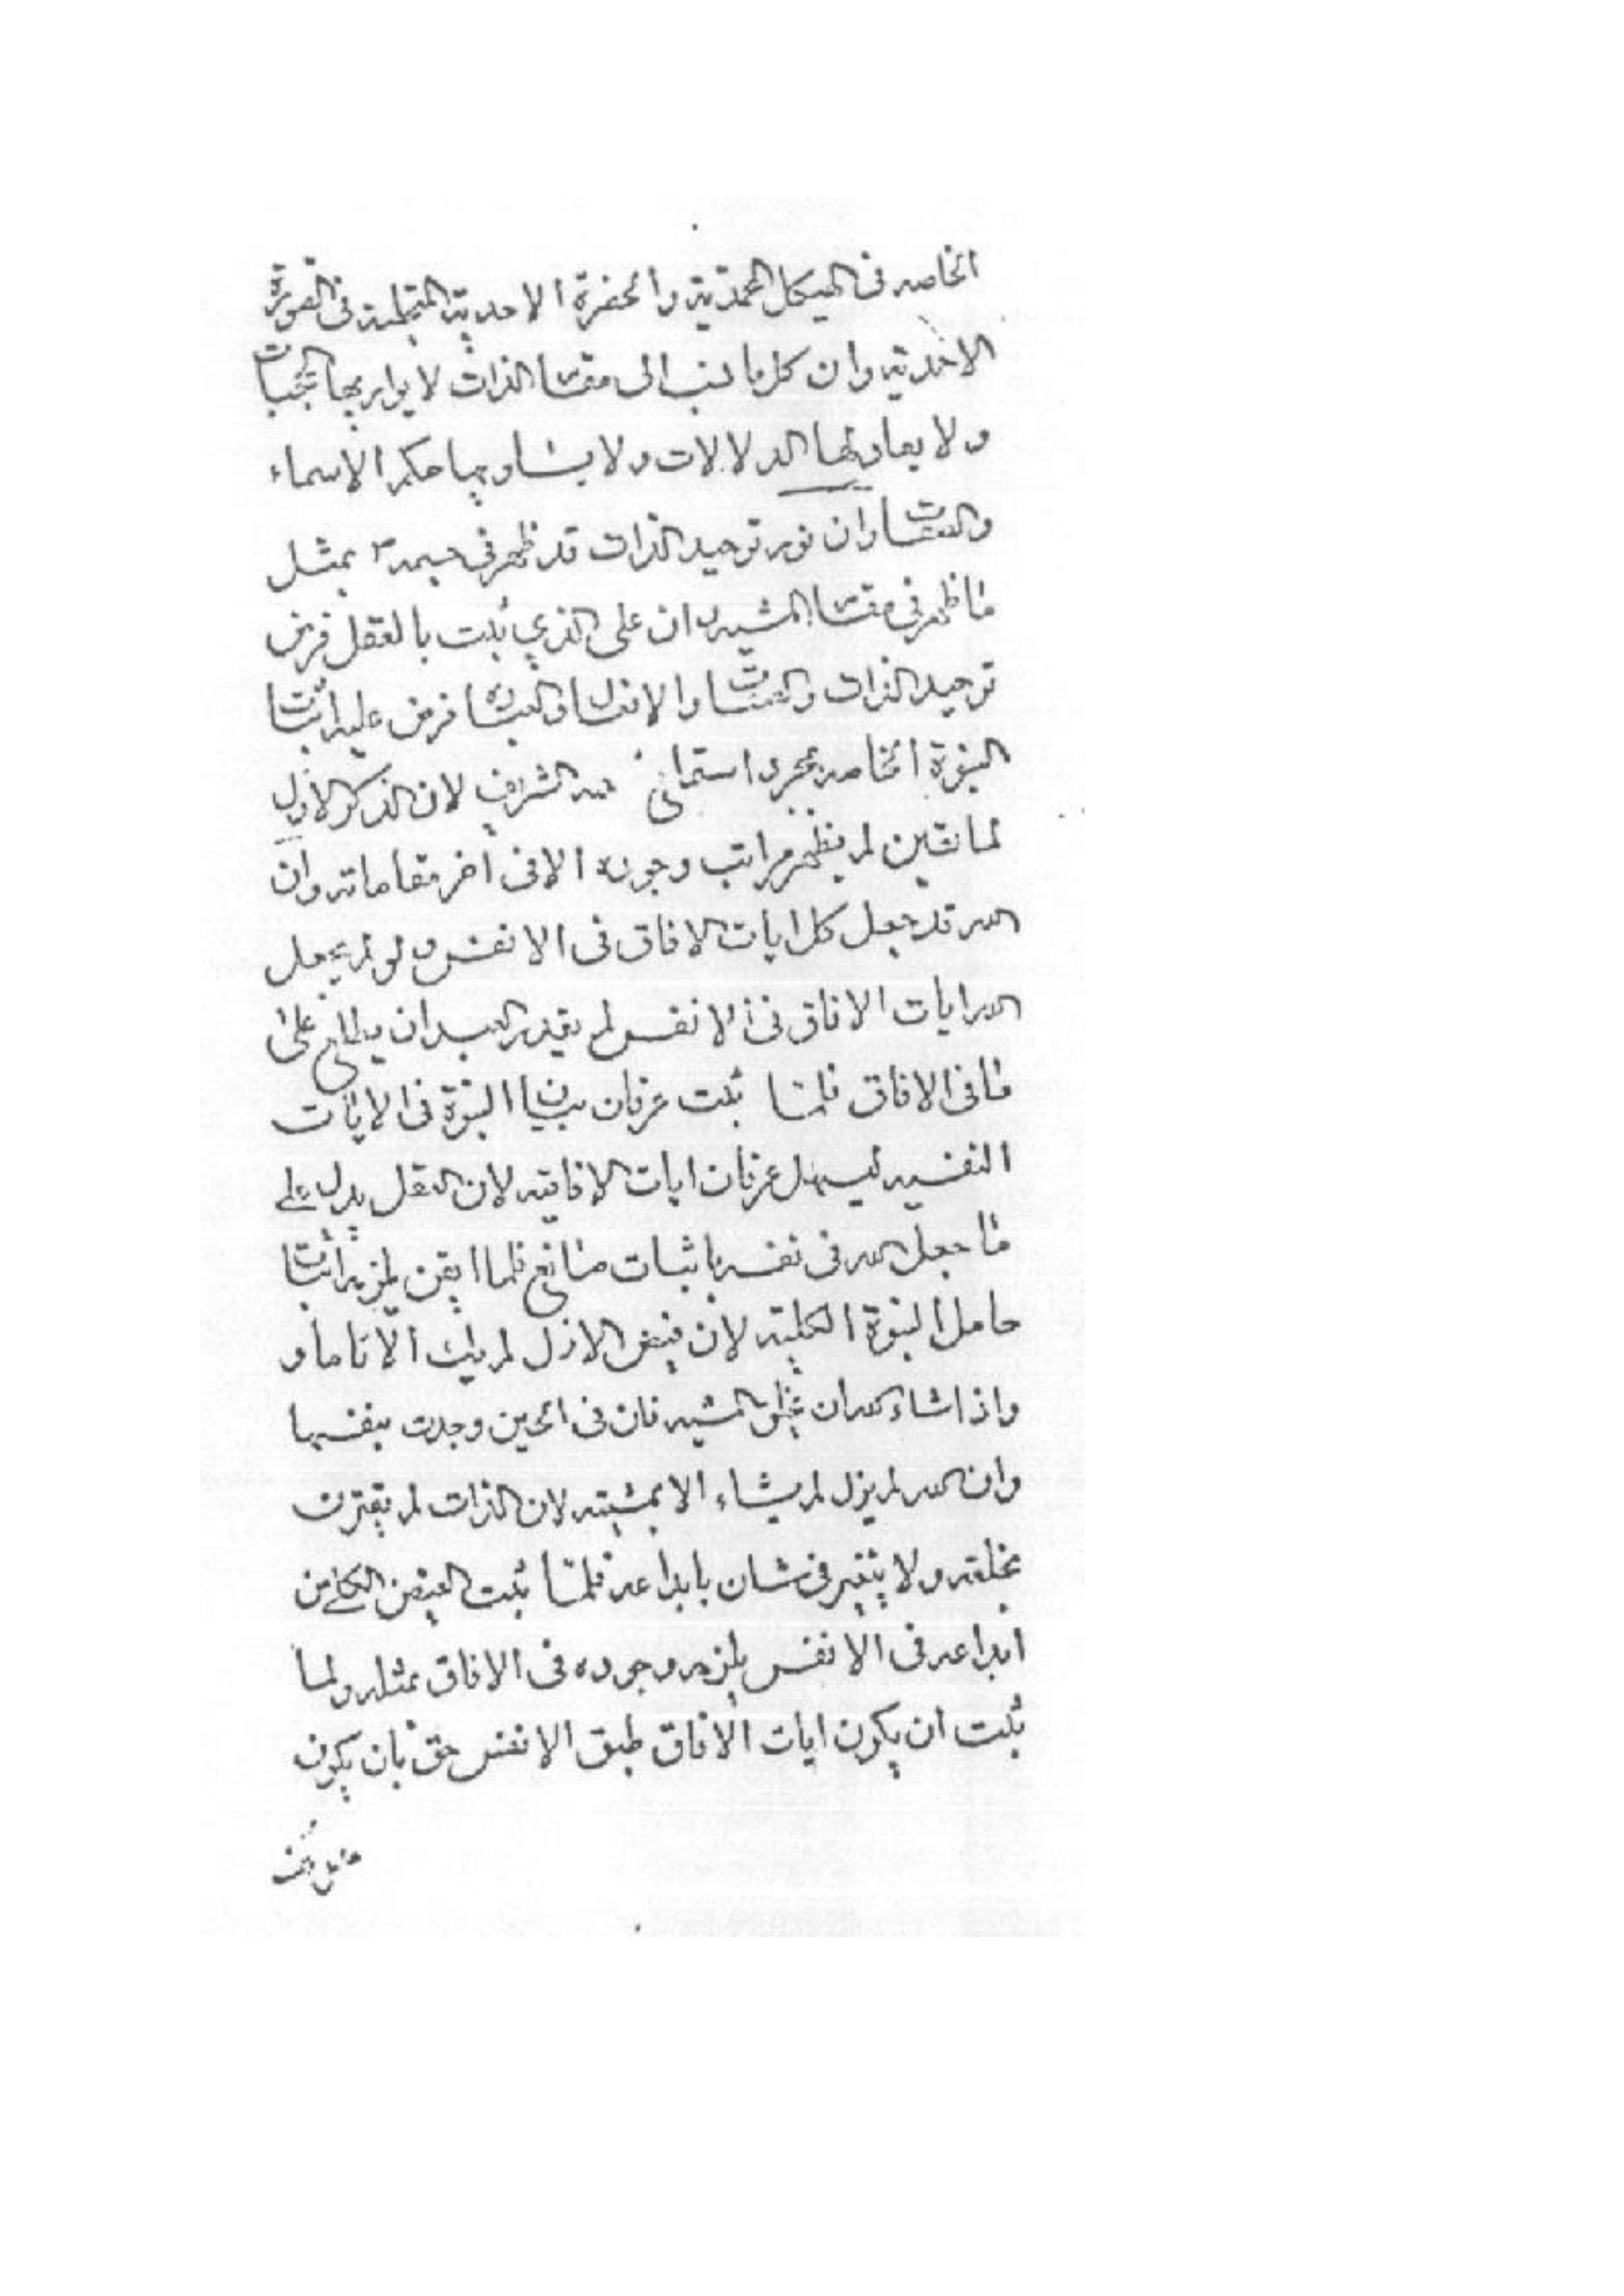 الخاصه فى الهيكل المحمدية والحضرة الاحدية المتجلية فى الصورة
الاحمدية وان كل ما نسب الى مقام الذات لا يواريها الحجبات
ولا يعادلها الدلالات ولا يساويها حكم الاسماء
والصفات وان نور توحيد الذات قد ظهر فى جسمه بمثل
ما ظهر فى مقام المشية وان على الذي ثبت بالعقل فرض
توحيد الذات والصفات والافعال والعبادة فرض عليه اثبات
النبوة الخاصه بمجرد استماع الشريف لان الذكر الاول
لما تعين لم يظهر مراتب وجوده الا فى اخر مقاماته وان
الله قد جعل كل ايات الافاق فى الانفس ولو لم يجعل
الله ايات الافاق فى الانفس لم يقدر العبد ان يطلع على
ما فى الافاق فلما ثبت عرفان بيان النبوة فى الايات
النفسيه ليسهل عرفان ايات الافاقيه لان العقل يدل على
ما جعل الله فى نفسه باثبات صانع فلما ايقن يلزمه اثبات
حامل النبوة الكلية لان فيض الازل لم يك الا تاما و
واذا شاء الله ان يخلق المشيه فان فى الحين وجدت بنفسها
وان الله لم يزل لم يشاء الا بمشيته لان الذات لم يقترن
بخلقه ولا يتغير فى شان بابداعه فلما ثبت الفيض الكلى من
ابداعه فى الانفس يلزمه وجوده فى الافاق بمثله ولما
ثبت ان يكون ايات الافاق طبق الانفس حق بان يكون